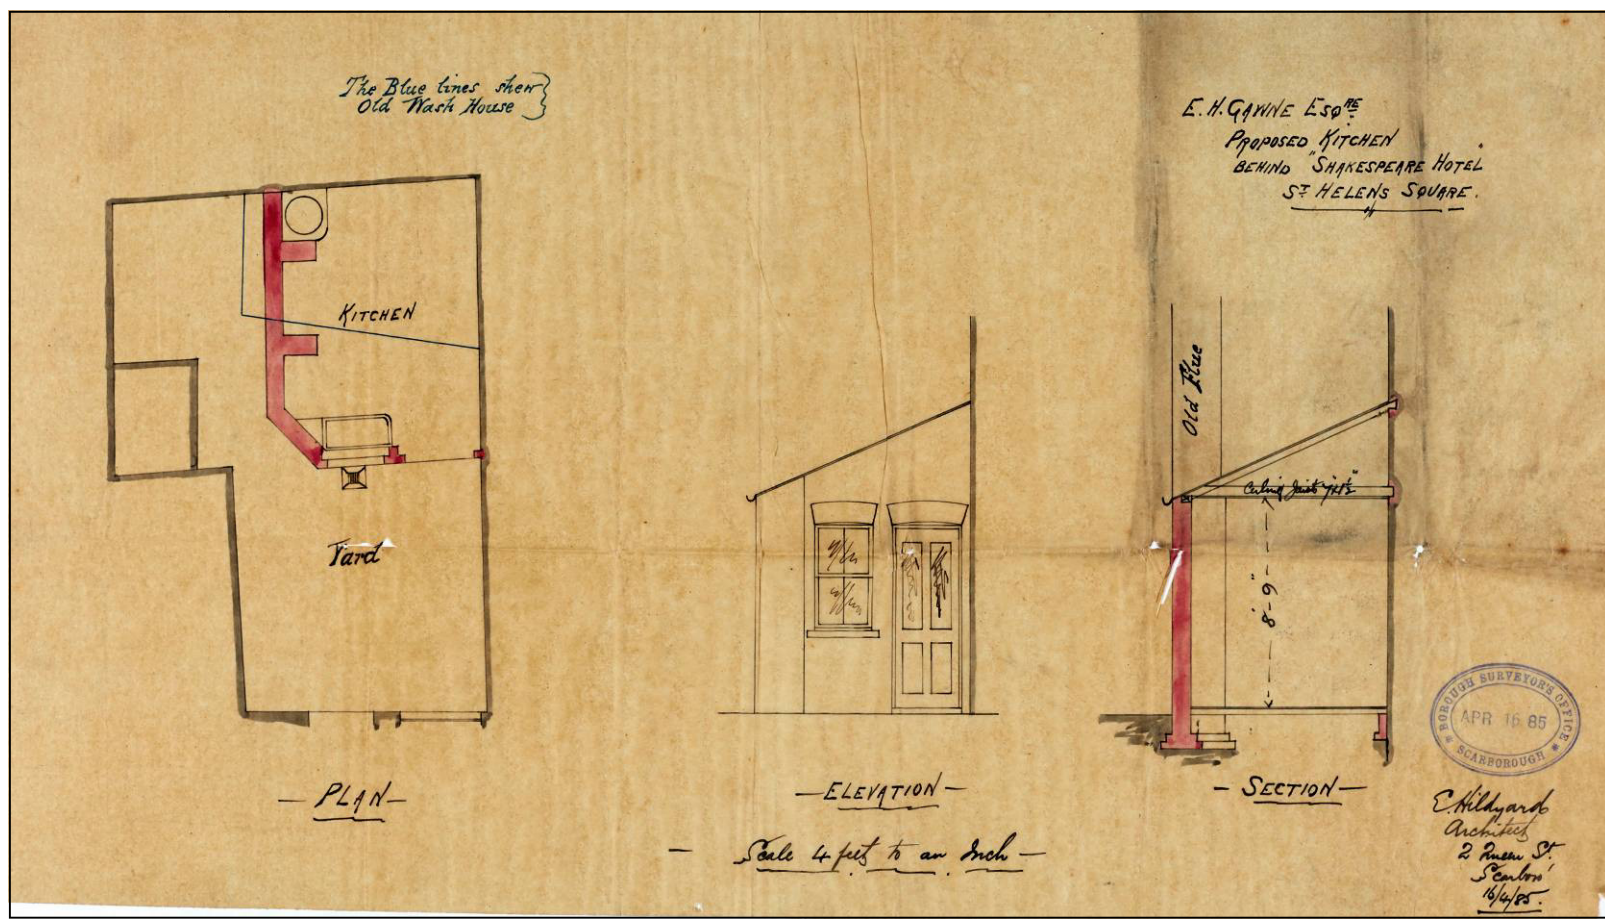 The Blue lines shew
Old Wash House
E. H. GAWNE ESQRE
PROPOSED KITCHEN
BEHIND "SHAKESPEARE HOTEL
ST HELENS SQUARE.
KITCHEN
Yard
Old Flue
Ceiling Joists 7x1½"
8'-9"
BOROUGH SURVEYOR'S OFFICE
APR 16 85
SCARBOROUGH
- PLAN -
- ELEVATION -
- SECTION -
- Scale 4 feet to an Inch -
E. Hildyard
Architect
2 Queen St.
Scarboro'
16/4/85.